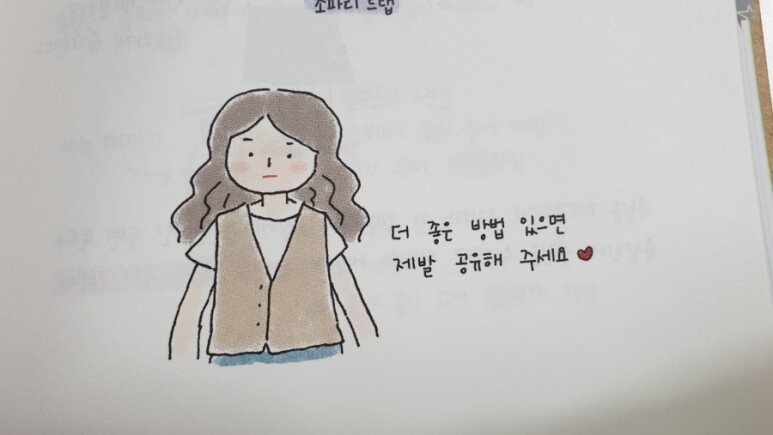 초파리 트랩
더 좋은 방법 있으면
제발 공유해 주세요 ♥